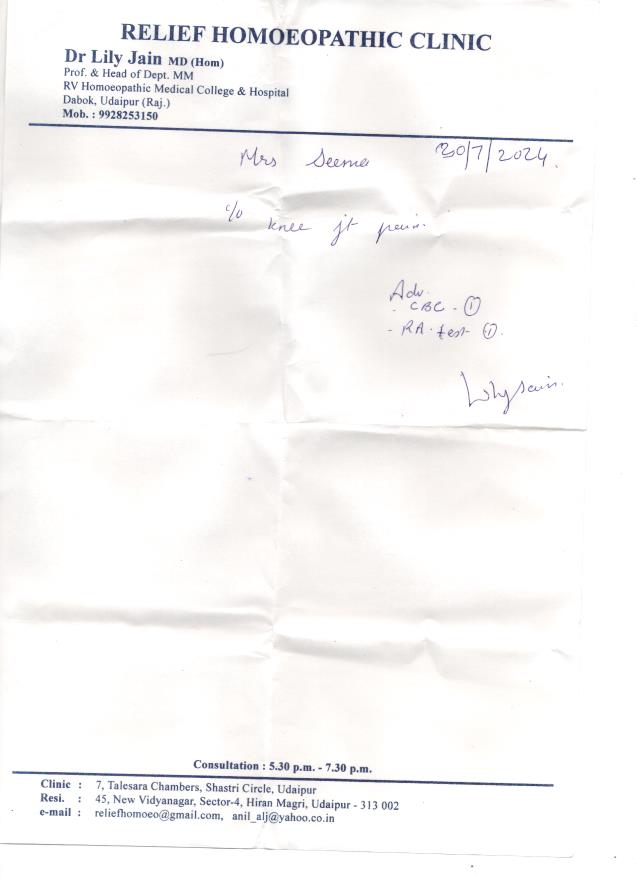 RELIEF HOMOEOPATHIC CLINIC
Dr Lily Jain MD (Hom)
Prof. & Head of Dept. MM
RV Homoeopathic Medical College & Hospital
Dabok, Udaipur (Raj.)
Mob. : 9928253150
Mrs Seema 30/7/2024.
c/o knee jt pain.
Adv.
- CBC - ①
- RA test - ①.
Lily Jain.
Consultation : 5.30 p.m. - 7.30 p.m.
Clinic : 7, Talesara Chambers, Shastri Circle, Udaipur
Resi. : 45, New Vidyanagar, Sector-4, Hiran Magri, Udaipur - 313 002
e-mail : reliefhomoeo@gmail.com, anil_alj@yahoo.co.in